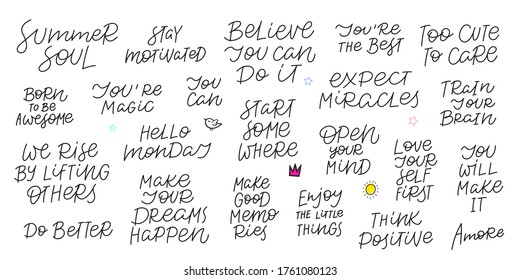 Summer
Soul
Stay
motivated
Believe
you can
Do it
You're
the Best
Too cute
to care
Born
to be
Awesome
You're
magic
You
can
expect
miracles
Train
your
Brain
Hello
monday
Start
some
where
Open
your
mind
Love
your
self
first
You
will
make
it
We rise
by lifting
others
Make
your
dreams
happen
Make
good
memo
ries
Enjoy
the little
things
Think
positive
Do Better
Amore
shutterstock
IMAGE ID: 1761080123
www.shutterstock.com